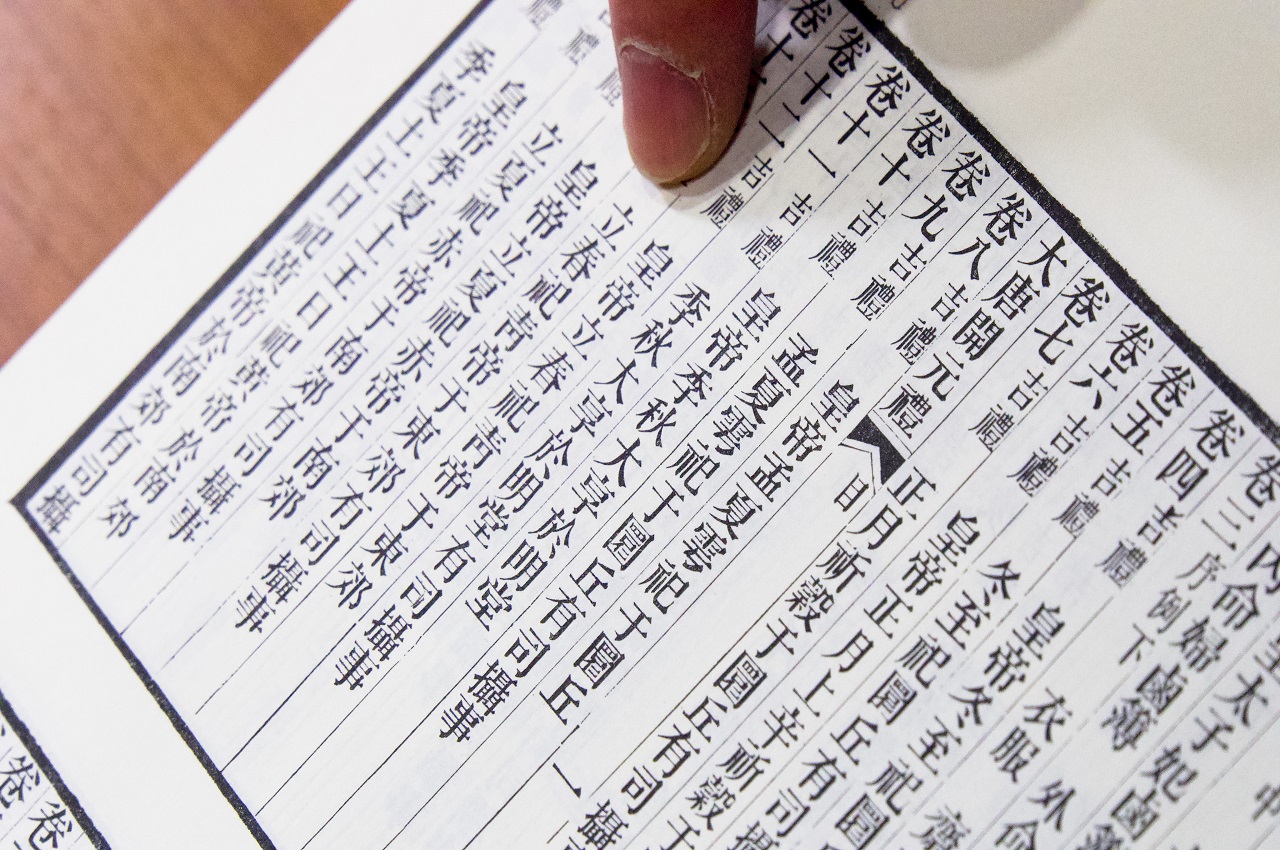 內命婦鹵簿
皇太子妃鹵
卷三序例下
衣服
卷四吉禮
皇帝冬至祀圜
卷五吉禮
冬至祀圜丘有司攝
卷六吉禮
皇帝正月上辛祈穀于
卷七吉禮
正月祈穀于圜丘有司攝
大唐開元禮 目 一
卷八吉禮
皇帝孟夏雩祀于圜丘
卷九吉禮
孟夏雩祀于圜丘有司攝事
卷十吉禮
皇帝季秋大享於明堂
卷十一吉禮
季秋大享於明堂有司攝事
卷十二吉禮
皇帝立春祀靑帝于東郊
卷十
立春祀靑帝于東郊有司攝事
禮
皇帝立夏祀赤帝于南郊
禮
立夏祀赤帝于南郊有司攝事
禮
皇帝季夏土王日祀黃帝於南郊
季夏土王日祀黃帝於南郊有司攝
卷
卷